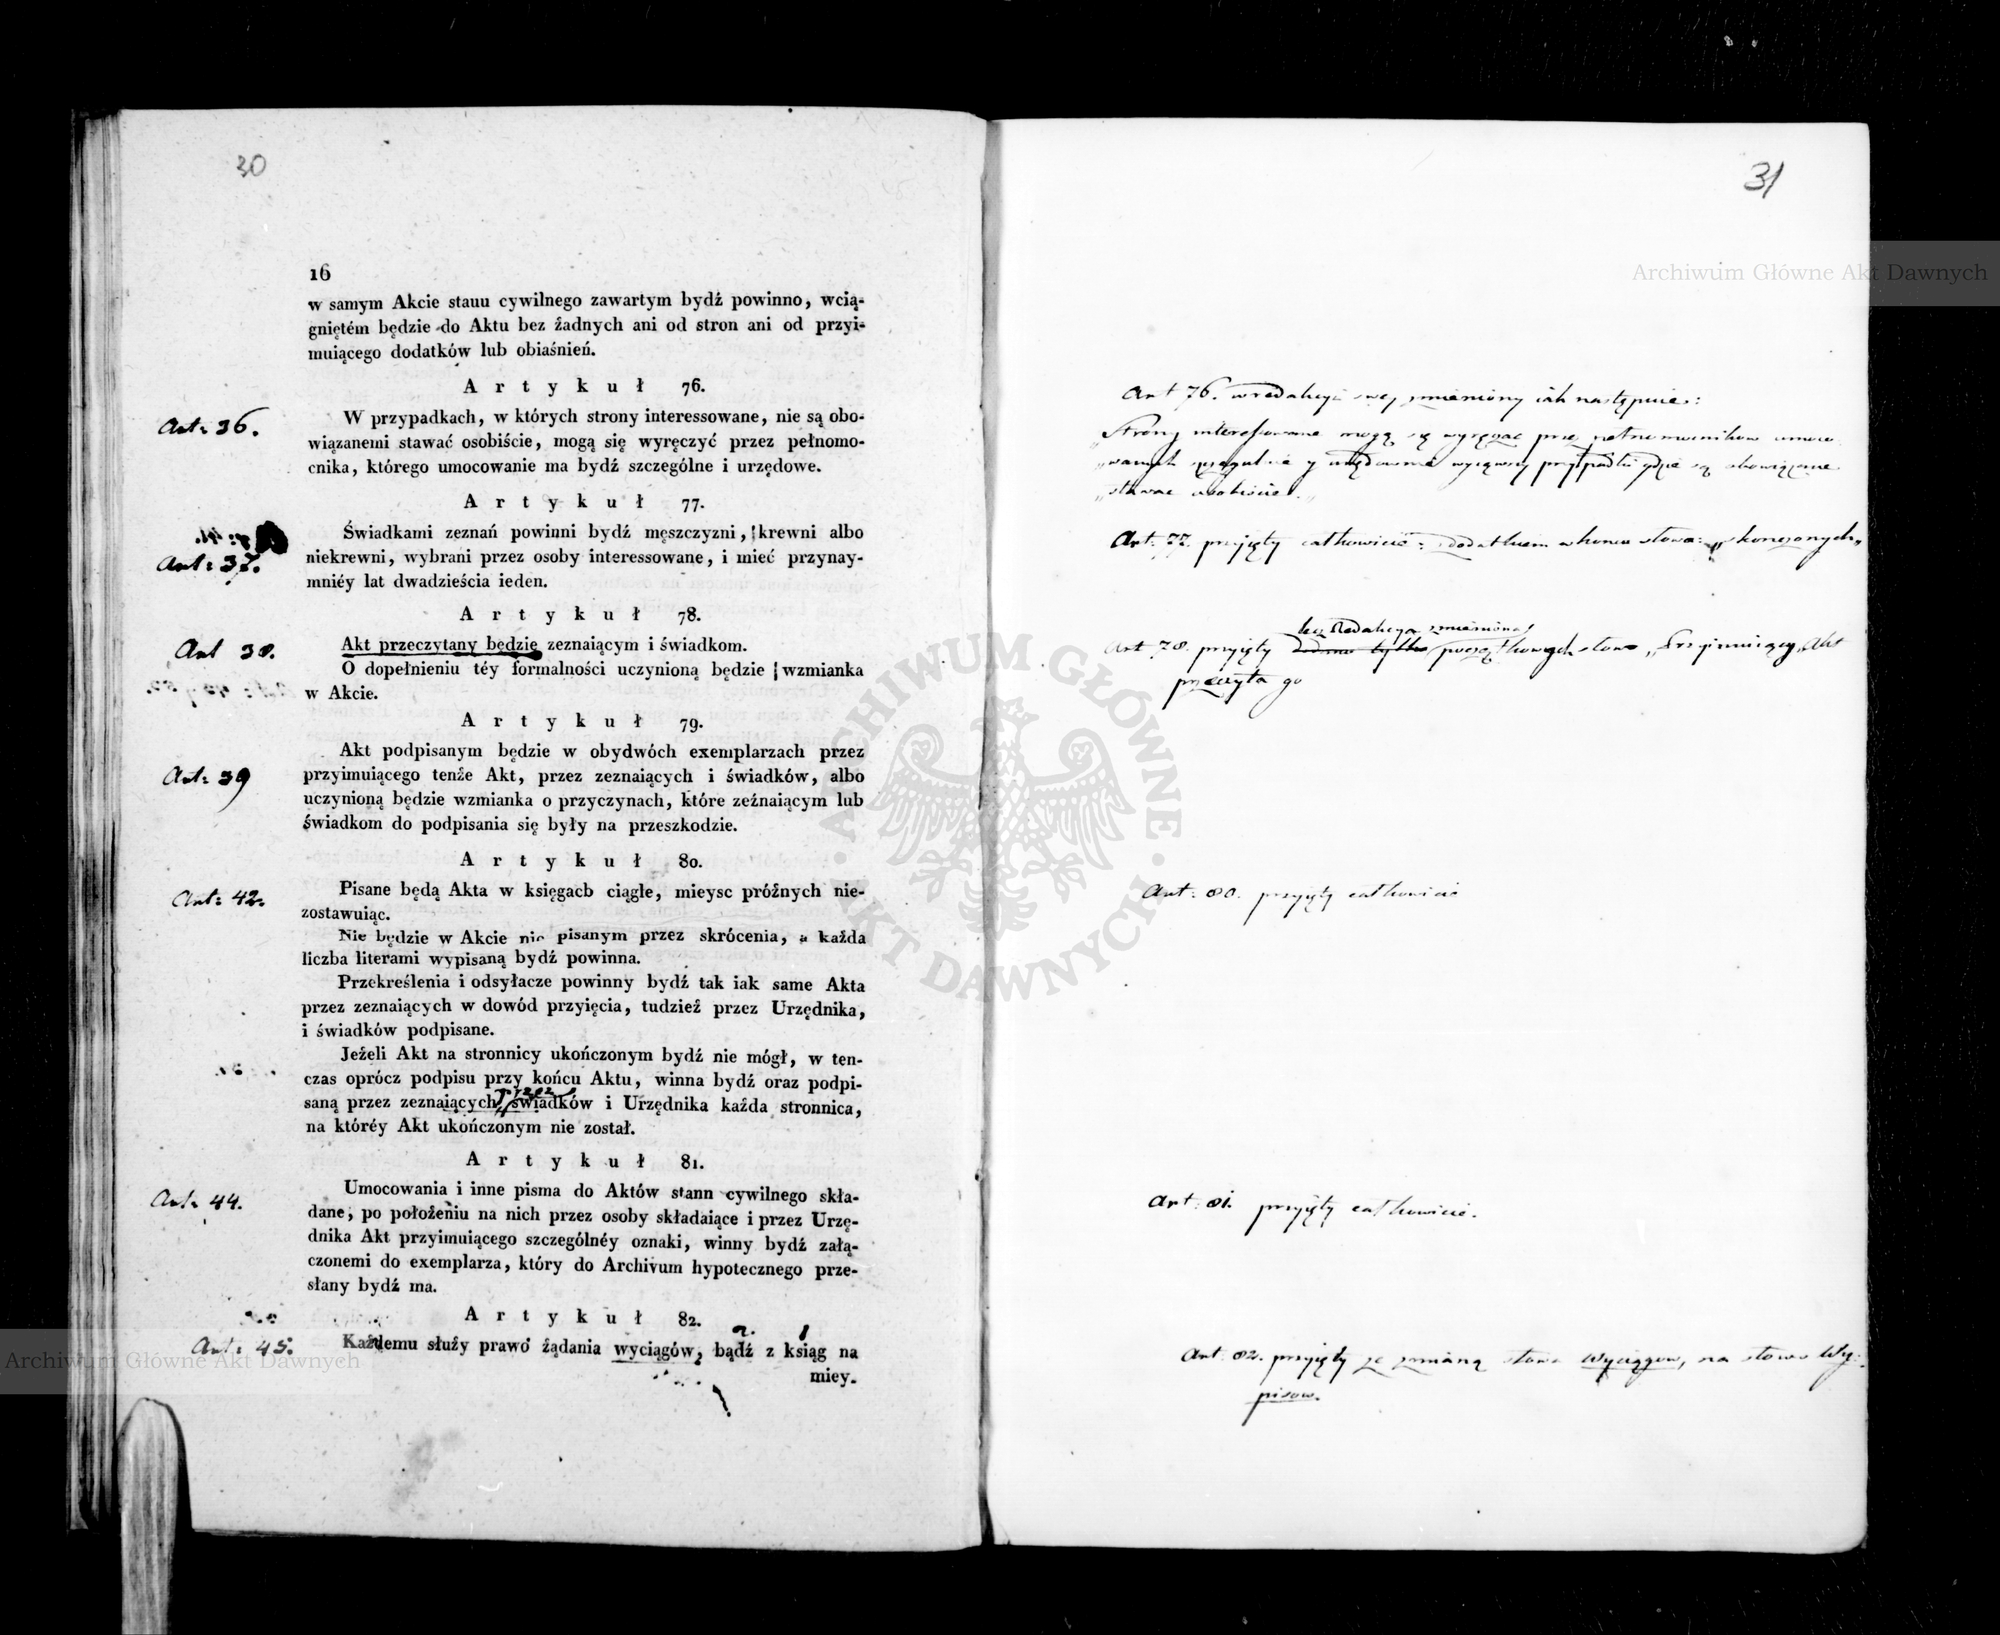 30
16
w samym Akcie stanu cywilnego zawartym bydź powinno, wcią-
gniętém będzie do Aktu bez żadnych ani od stron ani od przyi-
muiącego dodatków lub obiaśnień.
Artykuł 76.
Art: 36.
W przypadkach, w których strony interessowane, nie są obo-
wiązanemi stawać osobiście, mogą się wyręczyć przez pełnomo-
cnika, którego umocowanie ma bydź szczególne i urzędowe.
Artykuł 77.
Art: 37.
Świadkami zeznań powinni bydź męszczyzni, krewni albo
niekrewni, wybrani przez osoby interessowane, i mieć przynay-
mniéy lat dwadzieścia ieden.
Artykuł 78.
Art 38.
Akt przeczytany będzie zeznaiącym i świadkom.
O dopełnieniu téy formalności uczynioną będzie wzmianka
w Akcie.
Artykuł 79.
Art: 39
Akt podpisanym będzie w obydwóch exemplarzach przez
przyimuiącego tenże Akt, przez zeznaiących i świadków, albo
uczynioną będzie wzmianka o przyczynach, które zeźnaiącym lub
świadkom do podpisania się były na przeszkodzie.
Artykuł 80.
Art: 42.
Pisane będą Akta w księgacb ciągle, mieysc próźnych nie-
zostawuiąc.
Nie będzie w Akcie nic pisanym przez skrócenia, a każda
liczba literami wypisaną bydź powinna.
Przekreślenia i odsyłacze powinny bydź tak iak same Akta
przez zeznaiących w dowód przyięcia, tudzież przez Urzędnika,
i świadków podpisane.
Jeżeli Akt na stronnicy ukończonym bydź nie mógł, w ten-
czas oprócz podpisu przy końcu Aktu, winna bydź oraz podpi-
przez
saną przez zeznaiących, świadków i Urzędnika każda stronnica,
na któréy Akt ukończonym nie został.
Artykuł 81.
Art. 44.
Umocowania i inne pisma do Aktów stann cywilnego skła-
dane, po położeniu na nich przez osoby składaiące i przez Urzę-
dnika Akt przyimuiącego szczególnéy oznaki, winny bydź załą-
czonemi do exemplarza, który do Archivum hypotecznego prze-
słany bydź ma.
Artykuł 82.
Art: 45.
Każdemu służy prawo żądania wyciągów, bądź z ksiąg na
miey-
31
Art 76. w redakcyi swey zmieniony iak następuie:
„Strony interessowane mogą się wyręczać przez pełnomocników umoco
„wanych szczegulnie y urzędownie wyiąwszy przypadki gdzie są obowiązane
„stawać osobiście.„
Art: 77. przyięty całkowicie z dodatkiem w końcu słowa: „skończonych„
lecz Redakcya zmieniona
Art 78. przyięty początkowych słow „Przyimuiący Akt
przeczyta go
Art: 80. przyięty całkowicie
Art: 81. przyięty całkowicie.
Art: 82. przyięty ze zmianą słowa Wyciągow, na słowo Wy-
pisow.
Archiwum Główne Akt Dawnych
Archiwum Główne Akt Dawnych
ARCHIWUM GŁÓWNE · AKT DAWNYCH ·